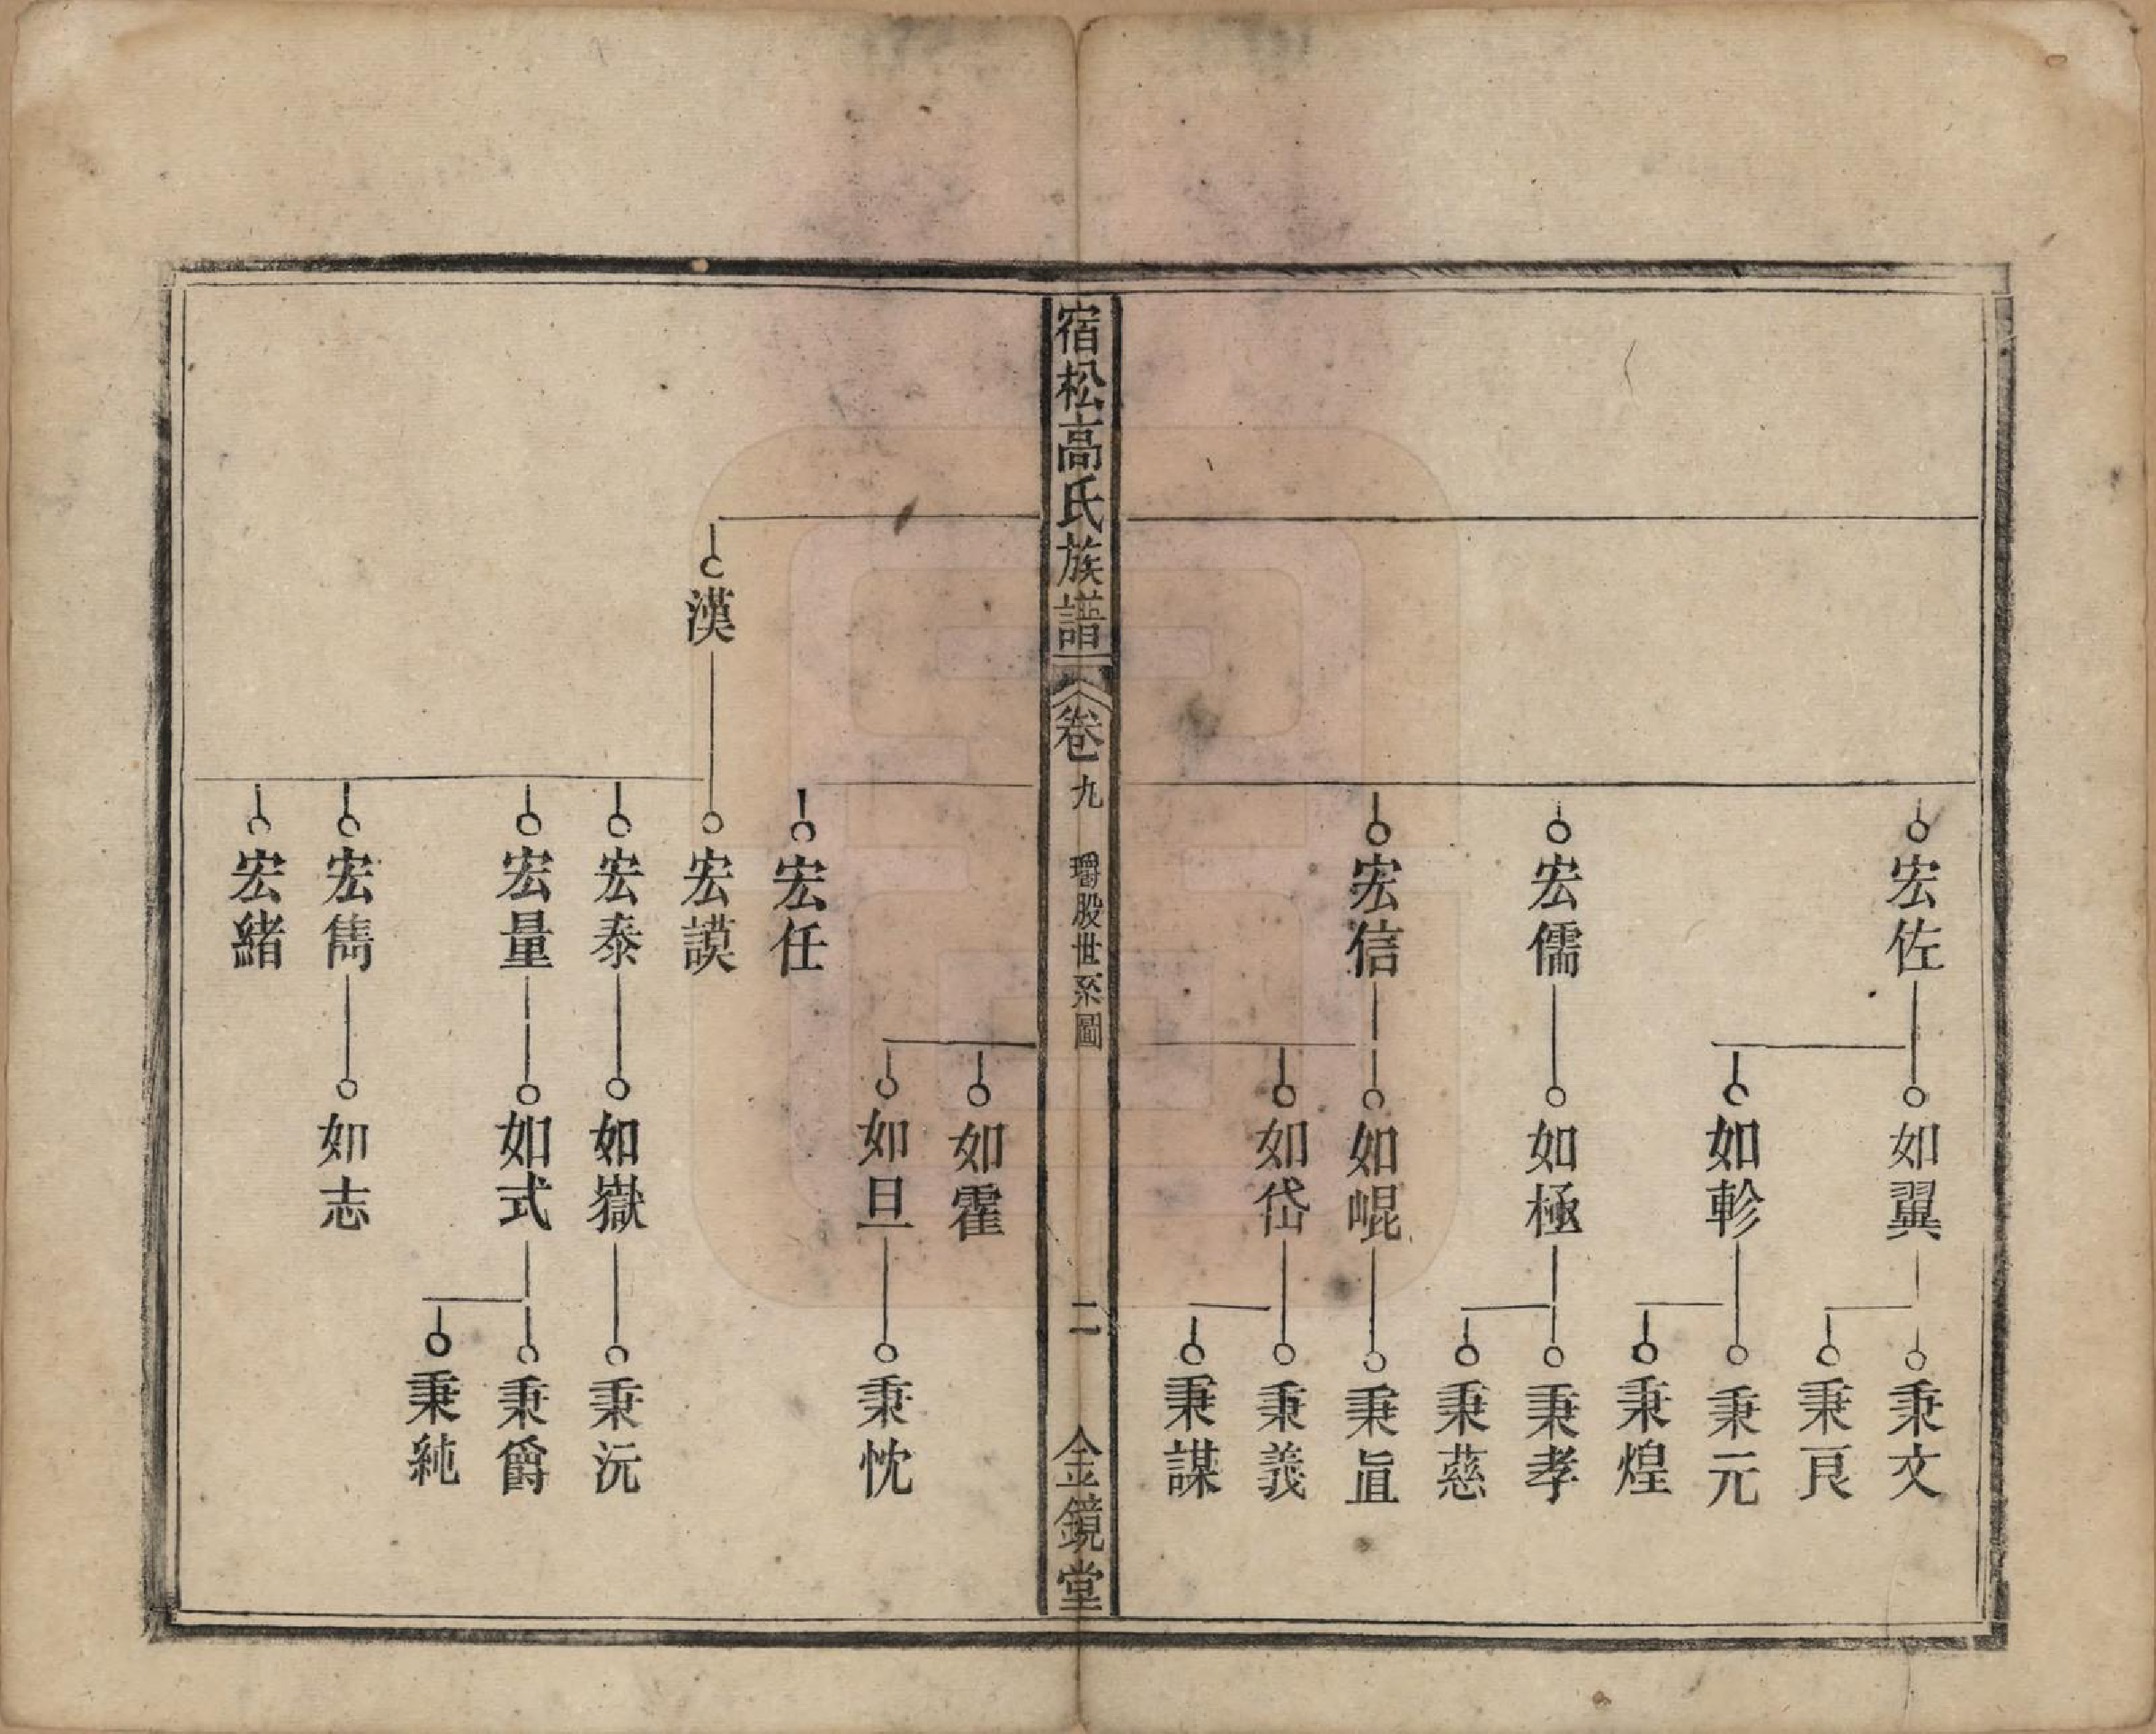 宏佐
如翼
秉文
秉良
如軫
秉元
秉煌
宏儒
如極
秉孝
秉慈
宏信
如崐
秉直
如岱
秉義
秉謀
宿松高氏族譜
卷九
股世系圖
二
金鏡堂
如霍
如旦
秉忱
宏任
漢
宏謨
宏泰
如嶽
秉沅
宏量
如式
秉爵
秉純
宏儁
如志
宏緒